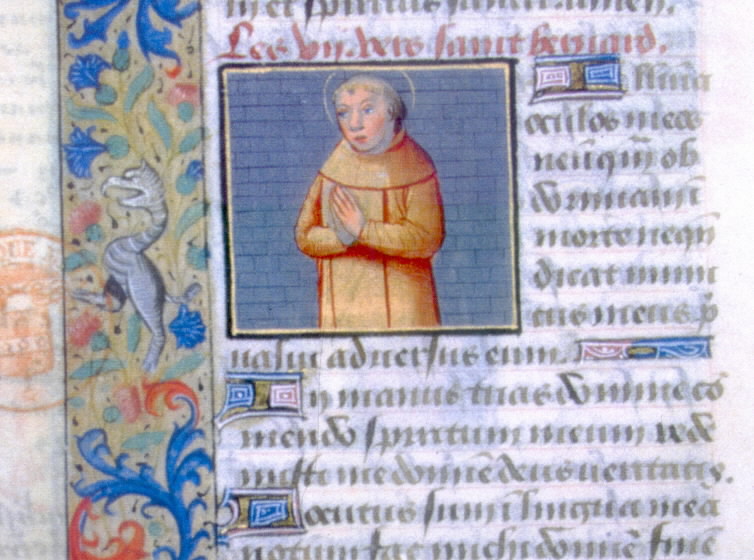 Les vij. vers saint bernard.
Illumina
oculos meos
ne unqm ob
dormiam in
morte nequ
dicat inimi
cus meus p
ualui aduersus eum
In manus tuas domine co
mendo spiritum meum rede
misti me domine deus ueritatis.
Locutus sum in lingua mea
notum fac michi domine fine